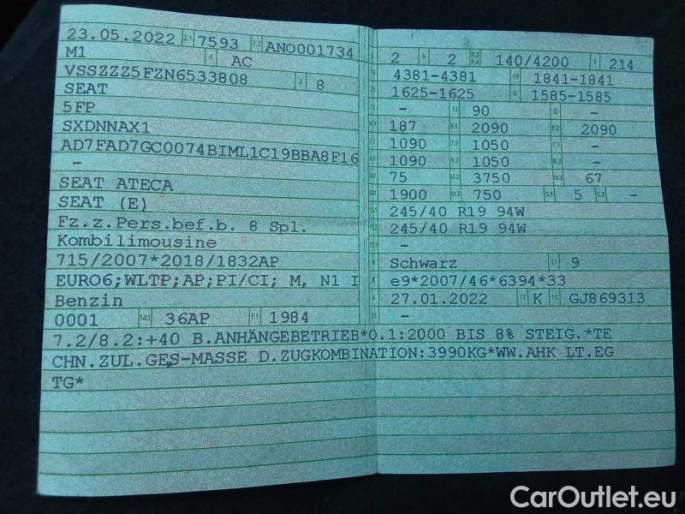 23.05.2022 7593 ANO001734
M1 AC
VSSZZZ5FZN6533808 8
SEAT
5FP
SXDNNAX1
AD7FAD7GC0074BIML1C19BBA8F16
-
SEAT ATECA
SEAT (E)
Fz.z.Pers.bef.b. 8 Spl.
Kombilimousine
715/2007*2018/1832AP
EURO6;WLTP;AP;PI/CI; M, N1 I
Benzin
0001 36AP 1984
2 2 140/4200 214
4381-4381 1841-1841
1625-1625 1585-1585
- 90 -
187 2090 2090
1090 1050 -
1090 1050 -
75 3750 67
1900 750 5 -
245/40 R19 94W
245/40 R19 94W
-
Schwarz 9
e9*2007/46*6394*33
27.01.2022 K GJ869313
7.2/8.2:+40 B.ANHÄNGEBETRIEB*O.1:2000 BIS 8% STEIG.*TE
CHN.ZUL.GES-MASSE D.ZUGKOMBINATION:3990KG*WW.AHK LT.EG
TG*
CarOutlet.eu